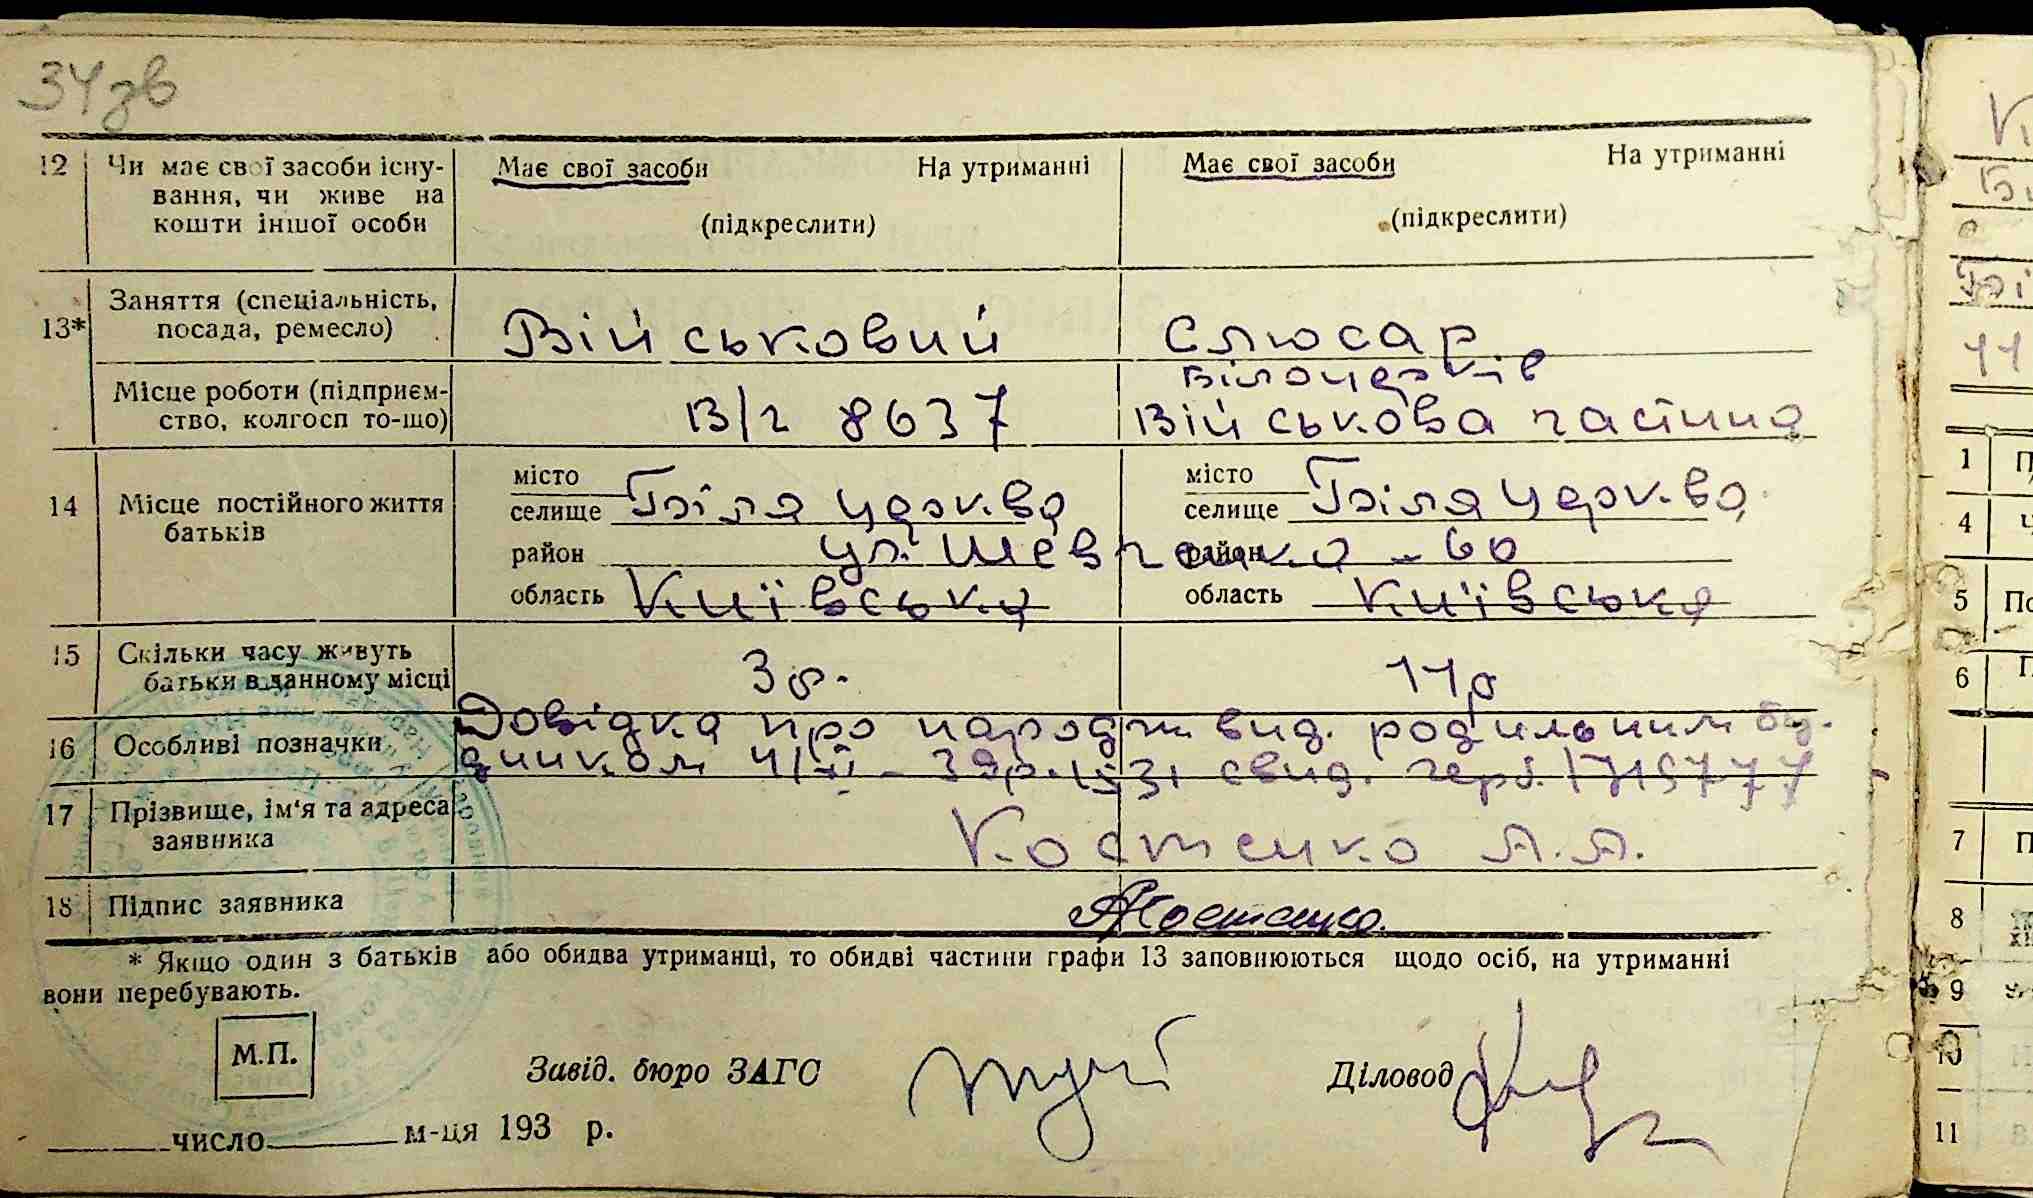 34зв
12 Чи має свої засоби існу- Має свої засоби На утриманні Має свої засоби На утриманні
вання, чи живе на
кошти іншої особи (підкреслити) (підкреслити)
13* Заняття (спеціальність,
посада, ремесло) Військовий Слюсар
Білоцерків
Місце роботи (підприєм-
ство, колгосп то-що) В/ч 8637 Військова частина
14 Місце постійного життя
батьків
місто місто
селище Біла Церква селище Біла Церква
район ул. Шевченка - 60 район
область Київська область Київська
15 Скільки часу живуть
батьки в данному місці 3 р. 11 р
16 Особливі позначки Довідка про народж. вид. родильним бу-
динком 4/VI - 39р. свид. серб.
17 Прізвище, ім'я та адреса
заявника Костенко А.А.
18 Підпис заявника АКостенко.
* Якщо один з батьків або обидва утриманці, то обидві частини графи 13 заповнюються щодо осіб, на утриманні
вони перебувають.
М.П.
Завід. бюро ЗАГС Діловод
число м-ця 193 р.
1
4
5
6
7
8
9
10
11